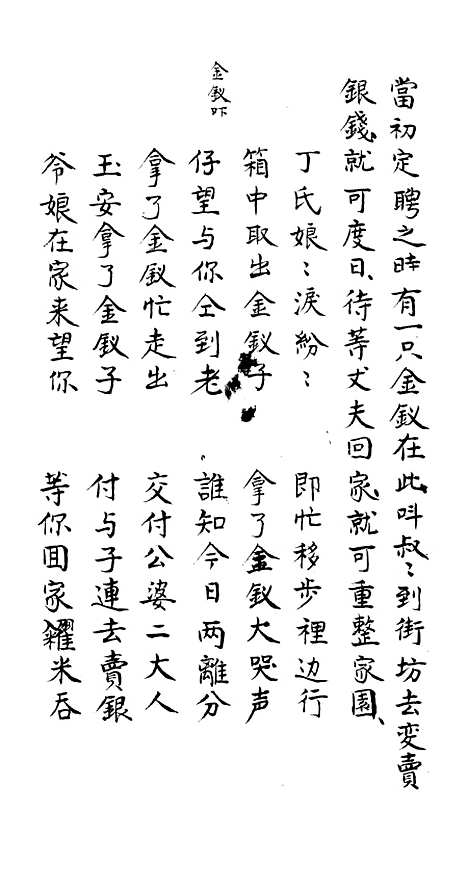 當初定聘之時有一只金釵在此、呌叔〻到街坊去变賣
銀錢、就可度日、待等丈夫回家、就可重整家園、
丁氏娘〻淚紛〻　即忙移步裡边行
箱中取出金釵子　拿了金釵大哭声
金釵吓
仔望与你仝到老　誰知今日两離分
拿了金釵忙走出　交付公婆二大人
玉安拿了金釵子　付与子連去賣銀
爷娘在家来望你　等你囬家糴米吞